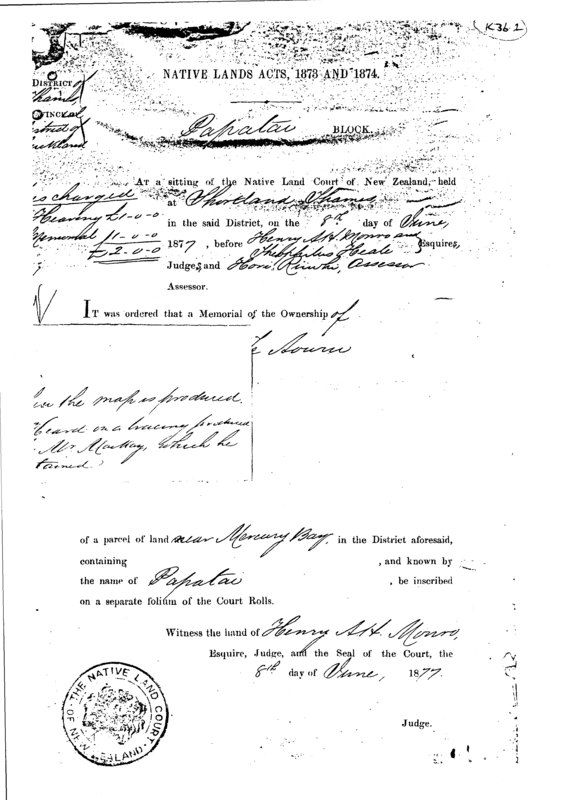 K36 1
NATIVE LANDS ACTS, 1873 AND 1874.
DISTRICT of
Papatai BLOCK.
AT a sitting of the Native Land Court of New Zealand, held
charged at Shortland Thames
Hearing £1-0-0 in the said District, on the 8th day of June,
Memorial £1-0-0 1877, before Henry A. H. Monro and
£2-0-0 Theophilus Heale Esquires,
Judges and Honi Assessor
Assessor.
IT was ordered that a Memorial of the Ownership of
the map is produced.
Heard on a tracing produced
Mr Mackay, which he
of a parcel of land near Mercury Bay, in the District aforesaid,
containing , and known by
the name of Papatai , be inscribed
on a separate folium of the Court Rolls.
Witness the hand of Henry A H. Monro,
Esquire, Judge, and the Seal of the Court, the
8th day of June, 1877.
THE NATIVE LAND COURT OF NEW ZEALAND
Judge.